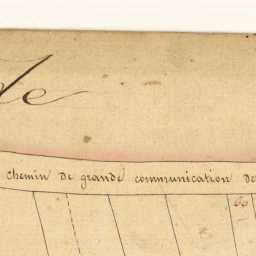 de
chemin de grande communication de